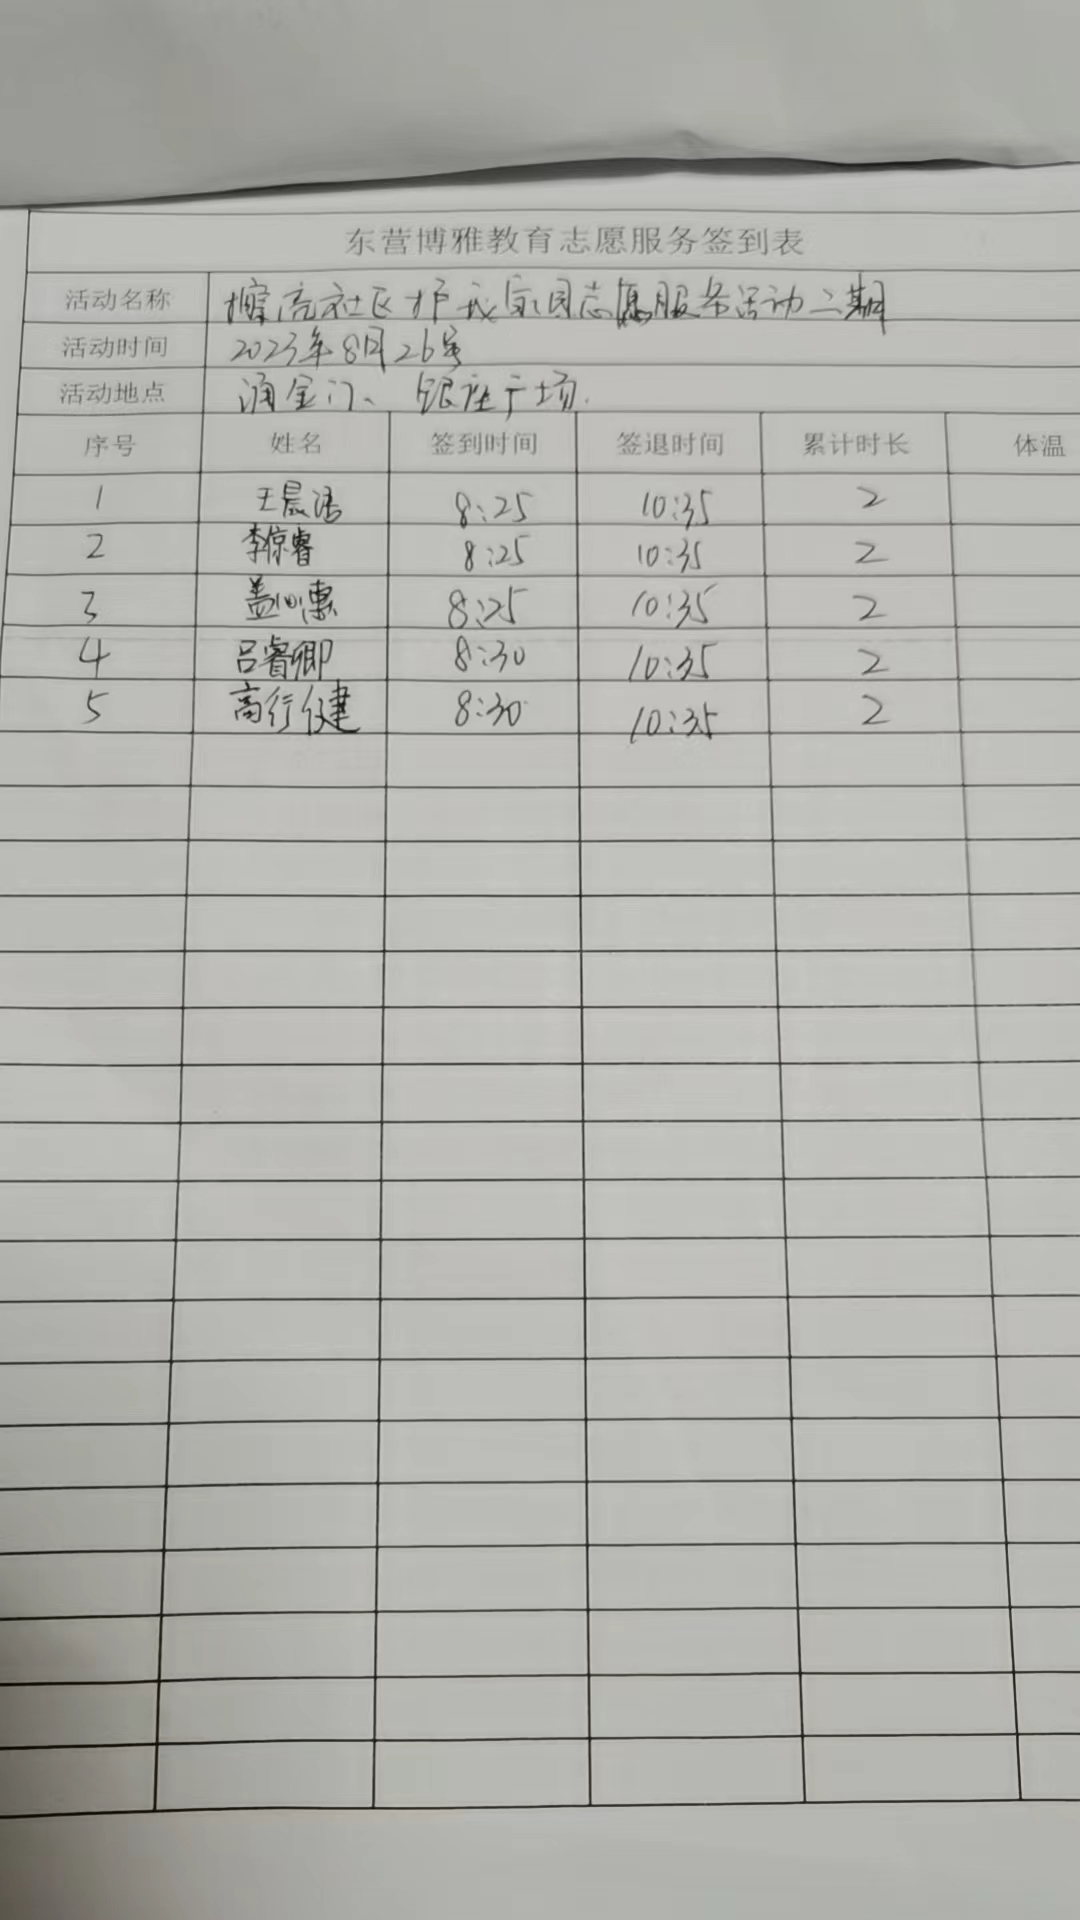 东营博雅教育志愿服务签到表
活动名称 擦亮社区护我家园志愿服务活动二期
活动时间 2023年8月26号
活动地点 涌金门、银座广场.
序号 姓名 签到时间 签退时间 累计时长 体温
1 王晨浩 8:25 10:35 2
2 李倞睿 8:25 10:35 2
3 盖 惠 8:25 10:35 2
4 吕睿卿 8:30 10:35 2
5 高行健 8:30 10:35 2